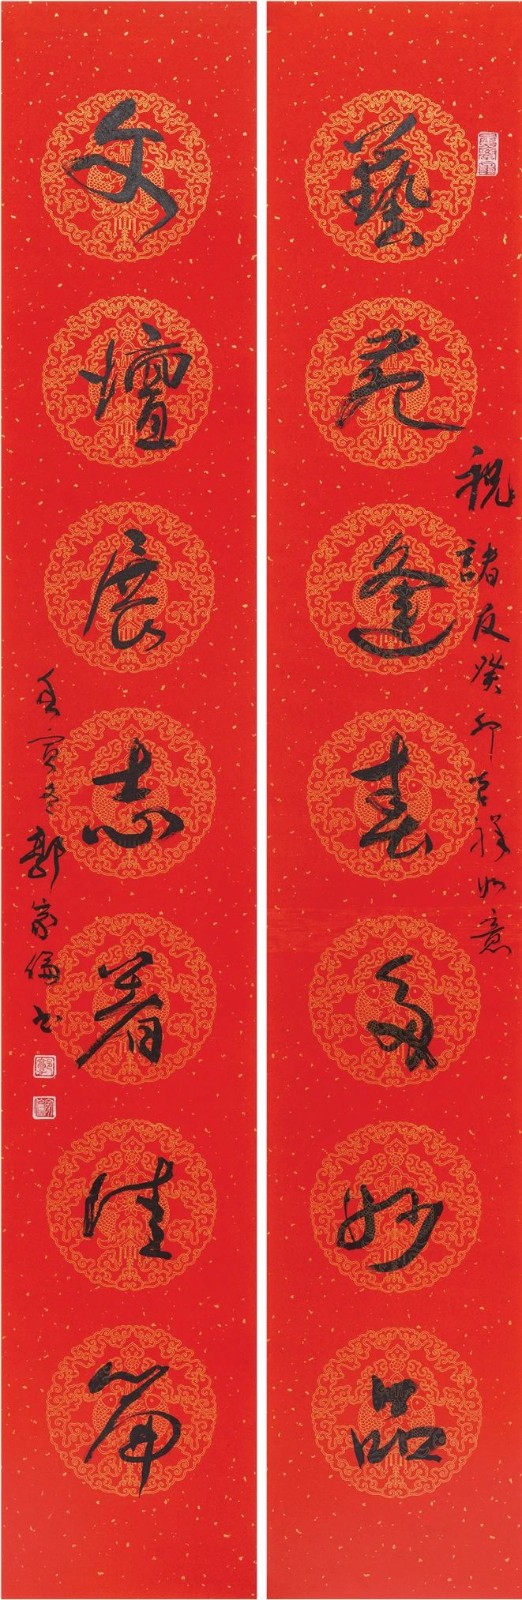 藝苑逢春多妙品
祝諸友癸卯吉祥如意
文壇展志著佳篇
壬寅冬郭家偏書